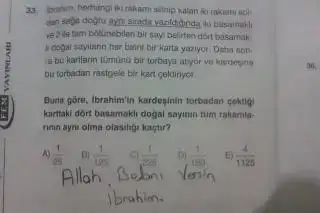 33. İbrahim, herhangi iki rakamı silinip kalan iki rakamı sol-
dan sağa doğru aynı sırada yazıldığında iki basamaklı
ve 2 ile tam bölünebilen bir sayı belirten dört basamak-
lı doğal sayıların her birini bir karta yazıyor. Daha son-
ra bu kartların tümünü bir torbaya atıyor ve kardeşine
bu torbadan rastgele bir kart çektiriyor.
36.
Buna göre, İbrahim'in kardeşinin torbadan çektiği
karttaki dört basamaklı doğal sayının tüm rakamla-
rının aynı olma olasılığı kaçtır?
A) 1/25 B) 1/125 C) 1/225 D) 1/180 E) 4/1125
Allah Belanı Versin
ibrahim.
FEM YAYINLARI